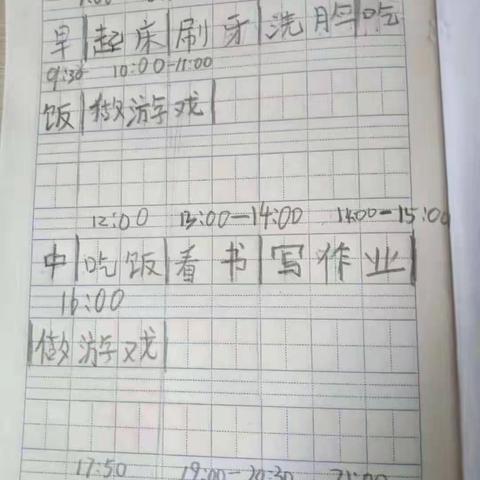 早|起床|刷牙|洗脸|吃
9:30 10:00-11:00
饭|做游戏|
12:00 13:00—14:00 14:00—15:00
中|吃饭|看书|写作业|
16:00
|做游戏|
17:50 19:00-20:30 21:00